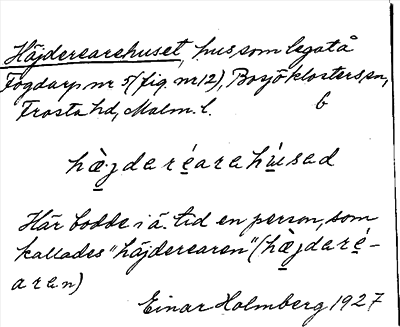 Häjderearehuset, hus, som legat å
Fogdarp nr 5 (fig. nr 12), Bosjöklosters sn,
Frosta hd, Malm. l. b
hæ̀jdaréarahúsad
Här bodde i ä. tid en person, som
kallades "häjderearen" (hæ̀jdaré-
aran)
Einar Holmberg 1927